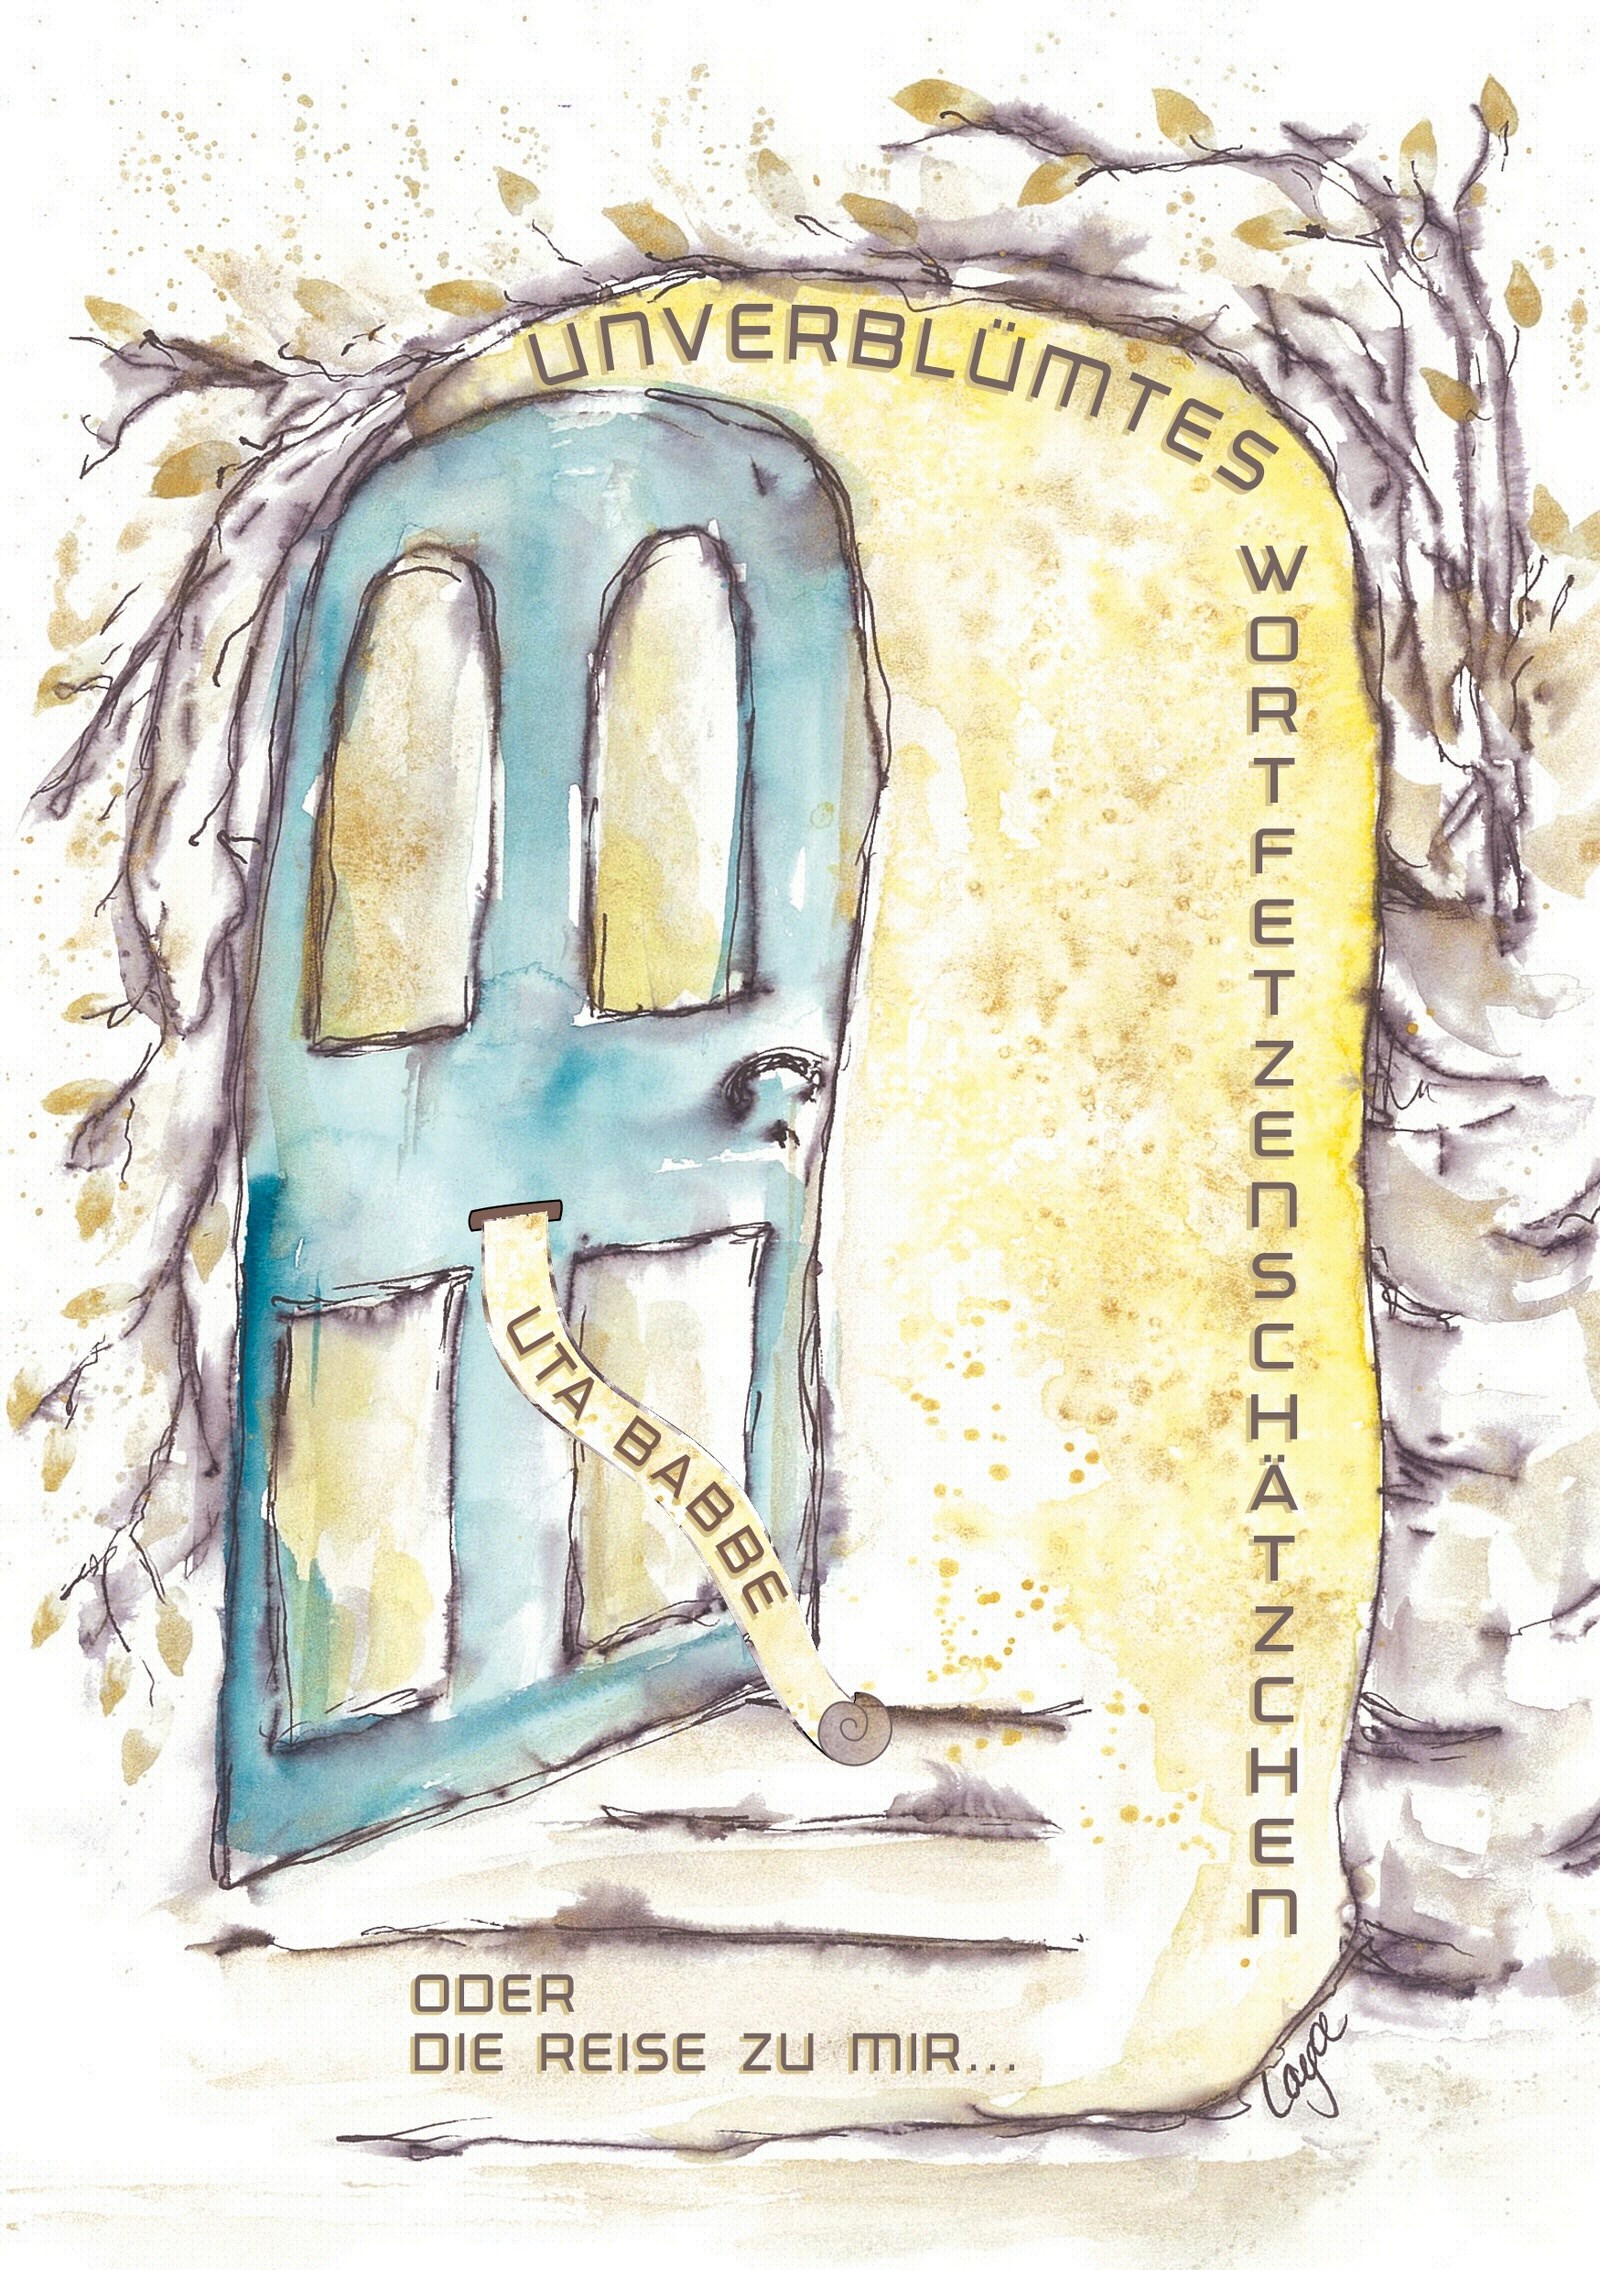 UNVERBLÜMTES
WORTFETZENSCHÄTZCHEN
UTA BABBE
ODER
DIE REISE ZU MIR...